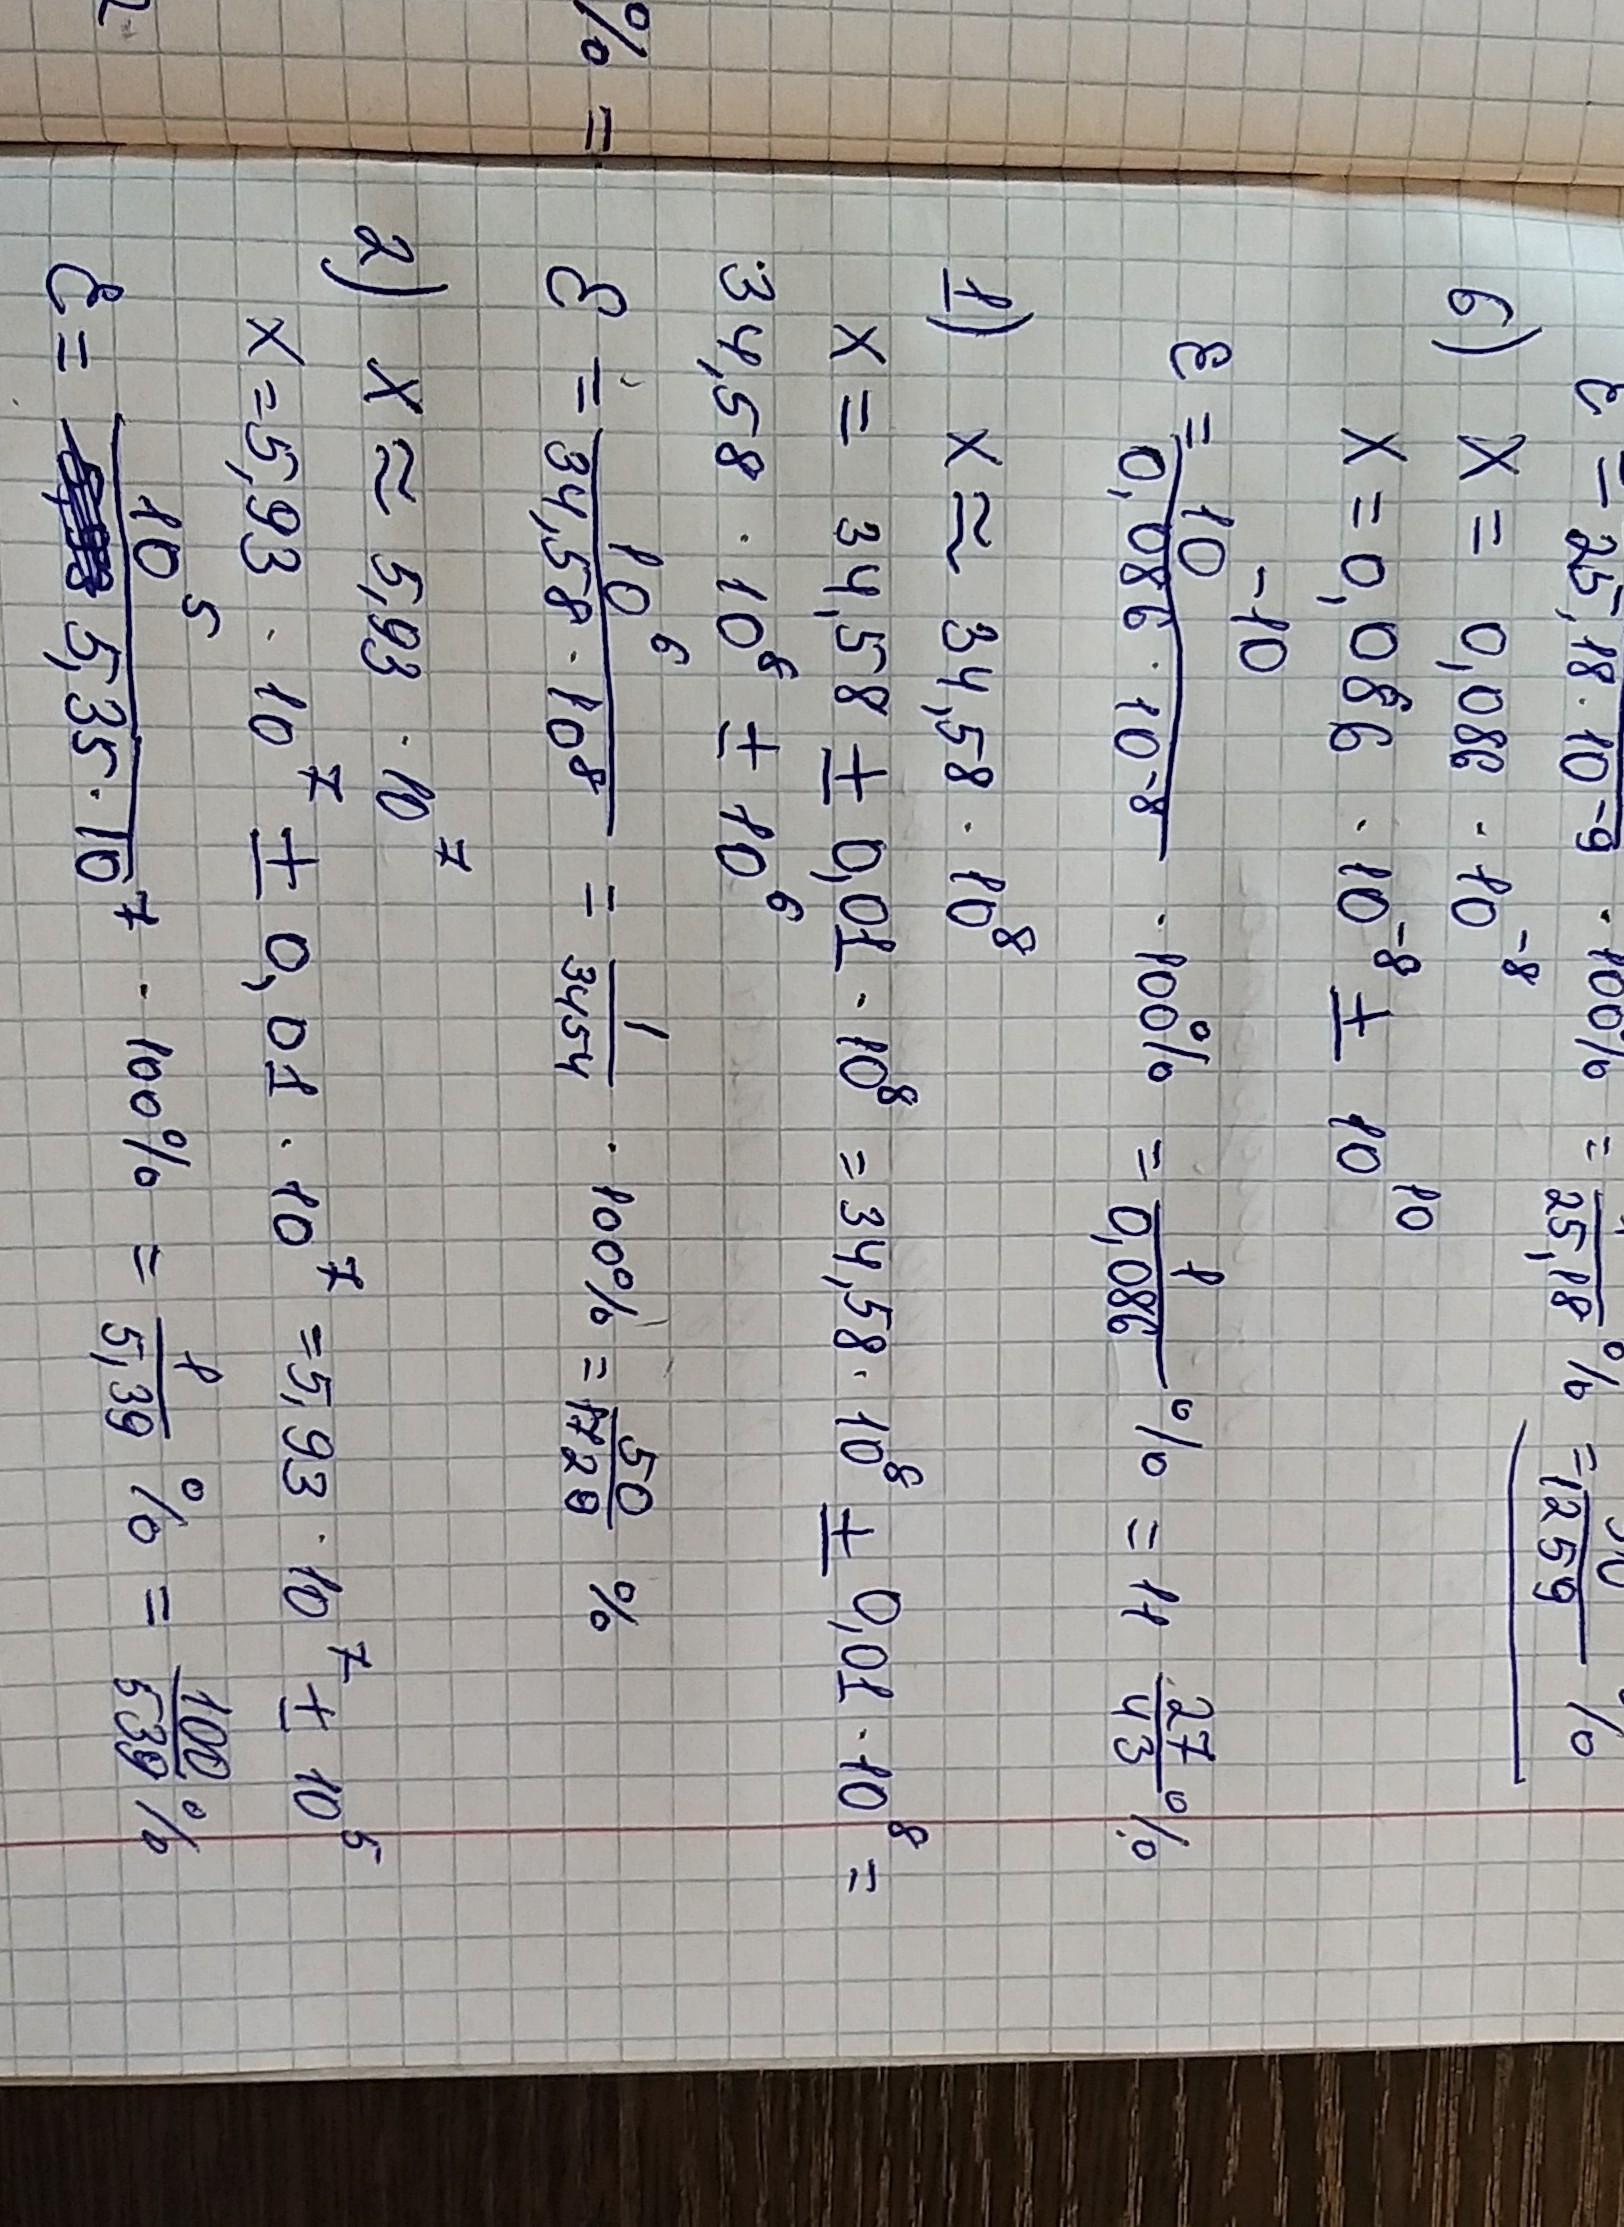 % =
ε = 25,18 · 10⁻⁹ · 100% = 25,18 % = 1259 %
6) X = 0,086 · 10⁻⁸
X = 0,086 · 10⁻⁸ ± 10¹⁰
ε = 10⁻¹⁰ / 0,086 · 10⁻⁸ · 100% = 1/0,086 % = 11 27/43 %
1) X ≈ 34,58 · 10⁸
X = 34,58 ± 0,01 · 10⁸ = 34,58 · 10⁸ ± 0,01 · 10⁸ =
34,58 · 10⁸ ± 10⁶
ε = 10⁶ / 34,58 · 10⁸ = 1/3454 · 100% = 50/1729 %
2) X ≈ 5,93 · 10⁷
X = 5,93 · 10⁷ ± 0,01 · 10⁷ = 5,93 · 10⁷ ± 10⁵
ε = 10⁵ / 5,35 · 10⁷ · 100% = 1/5,39 % = 100/539 %